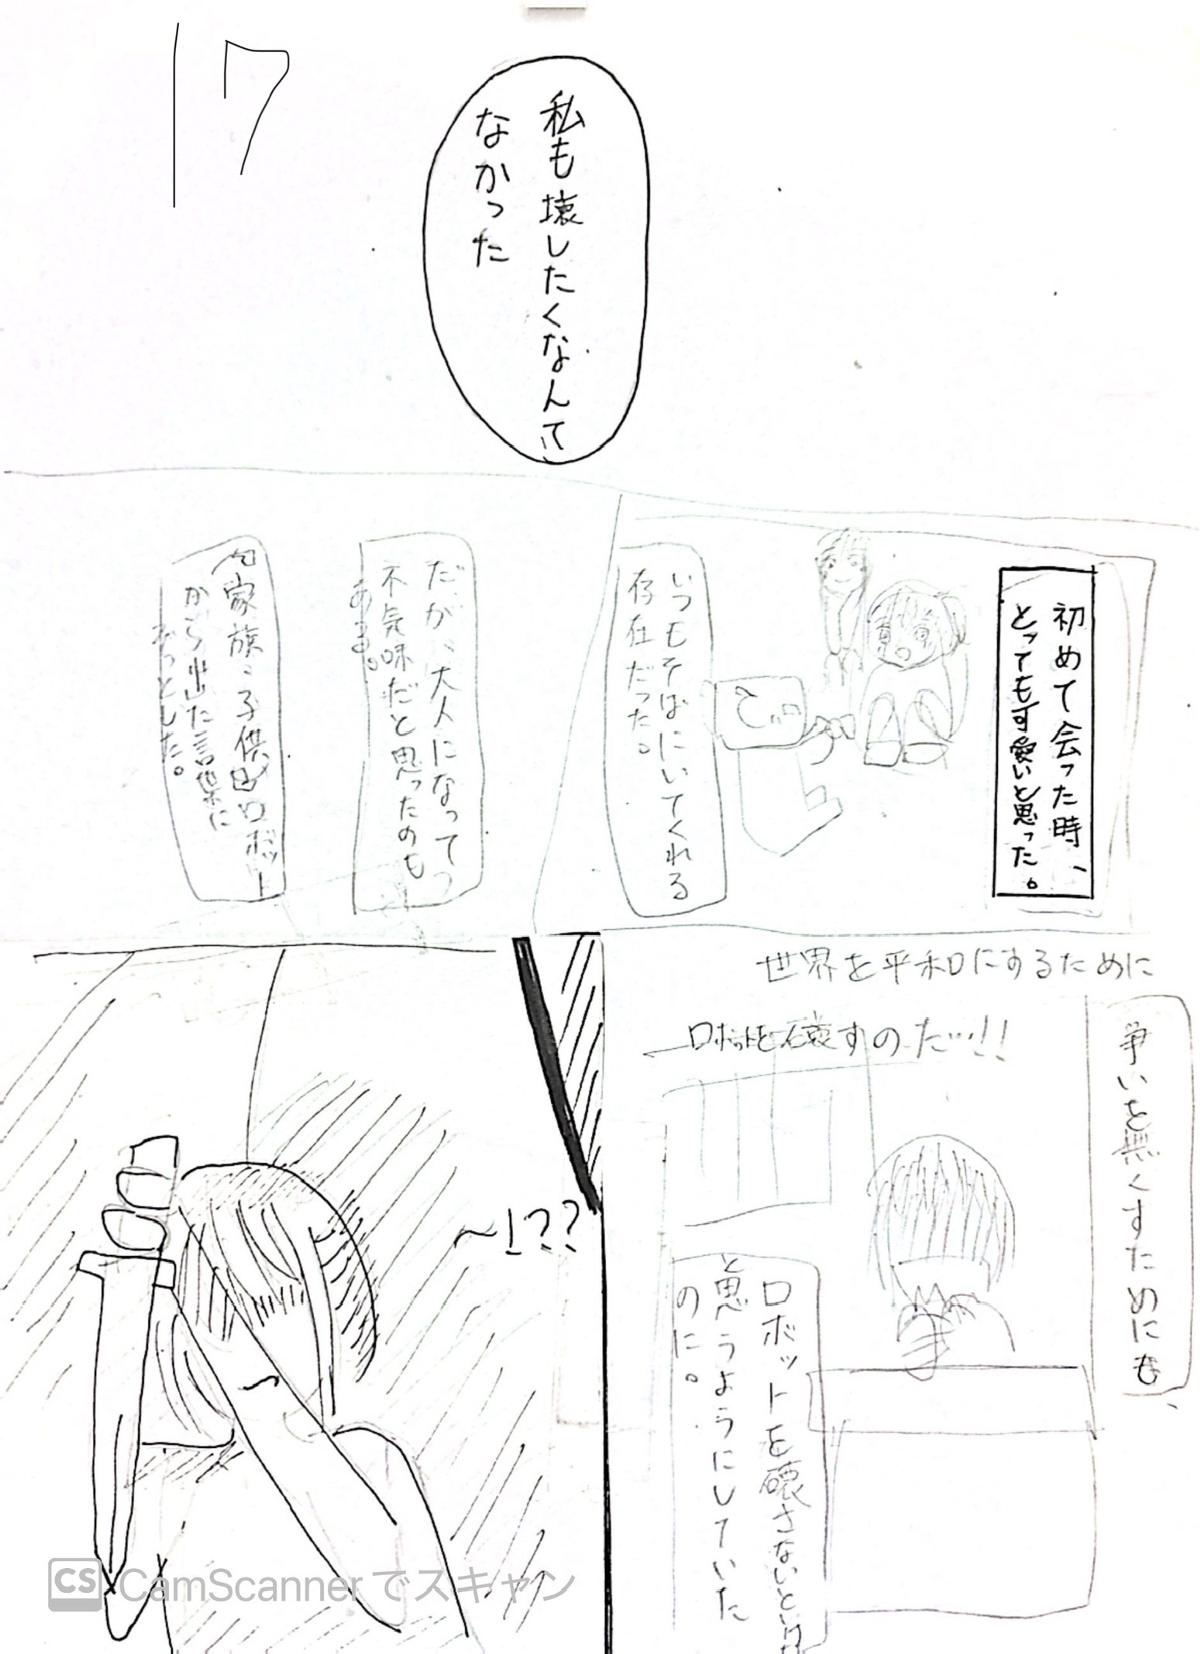 17
私も壊したくなんて
なかった
初めて会った時、
とっても可愛いと思った。
いつもそばにいてくれる
存在だった。
だが、大人になって
不気味だと思ったのも
ある。
家族、子供
から出た言葉に
世界を平和にするために
ロボットを壊すのだ…!!
争いを無くすためにも、
ロボットを壊さないと
と思うようにしていた
のに。
〜!??
CS CamScannerでスキャン